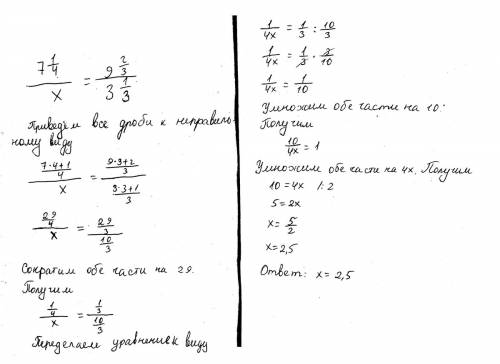 7 1/4 / x = 9 2/3 / 3 1/3
Приведём все дроби к неправиль-
ному виду
(7·4+1)/4 / x = (9·3+2)/3 / (3·3+1)/3
29/4 / x = 29/3 / 10/3
Сократим обе части на 29.
Получим
1/4 / x = 1/3 / 10/3
Переделаем уравнение к виду
1/4x = 1/3 : 10/3
1/4x = 1/3 · 3/10
1/4x = 1/10
Умножим обе части на 10.
Получим
10/4x = 1
Умножим обе части на 4x. Получим
10 = 4x |:2
5 = 2x
x = 5/2
x = 2,5
Ответ: x = 2,5